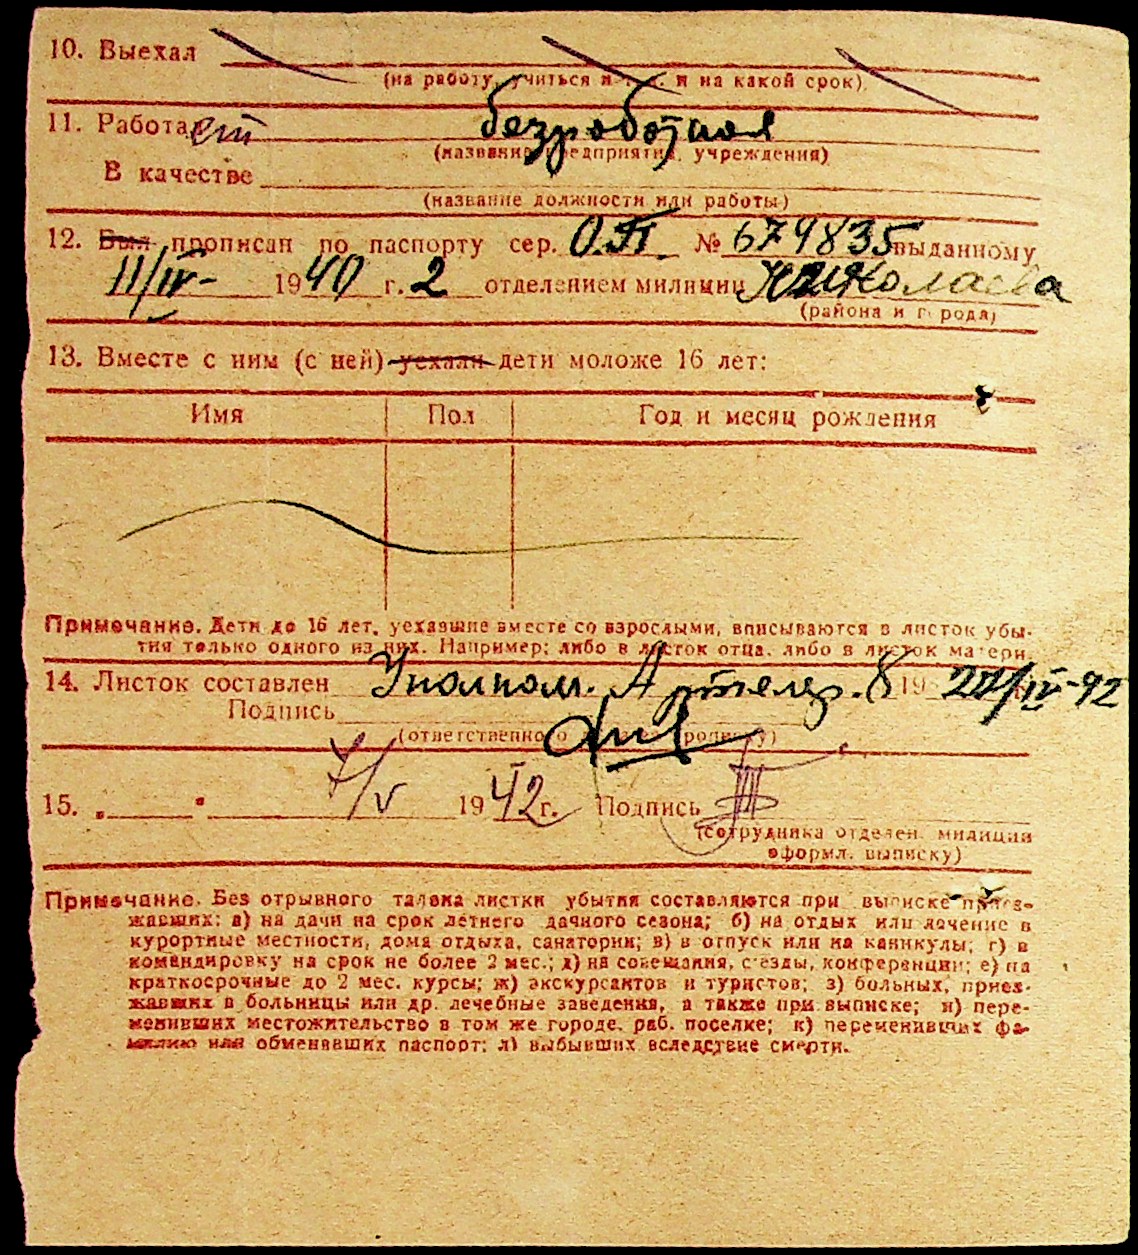 10. Выехал
(на работу, учиться и т. п. и на какой срок).
11. Работает безработная
(название предприятия, учреждения)
В качестве
(название должности или работы)
12. Был прописан по паспорту сер. О.П. № 679835 выданному
11/IV- 1940 г. 2 отделением милиции Николаева
(района и города)
13. Вместе с ним (с ней) уехали дети моложе 16 лет:
Имя Пол Год и месяц рождения
Примечание. Дети до 16 лет, уехавшие вместе со взрослыми, вписываются в листок убы-
тия только одного из них. Например: либо в листок отца, либо в листок матери.
14. Листок составлен Уполном. 8 19 IV-42
Подпись
(ответственного за прописку)
15. „ " 7/V 1942 г. Подпись
(сотрудника отделен. милиции
оформл. выписку)
Примечание. Без отрывного талона листки убытия составляются при выписке приез-
жавших: а) на дачи на срок летнего дачного сезона; б) на отдых или лечение в
курортные местности, дома отдыха, санатории; в) в отпуск или на каникулы; г) в
командировку на срок не более 2 мес.; д) на совещания, с'езды, конференции; е) на
краткосрочные до 2 мес. курсы; ж) экскурсантов и туристов; з) больных, приез-
жавших в больницы или др. лечебные заведения, а также при выписке; и) пере-
менивших местожительство в том же городе, раб. поселке; к) переменивших фа-
милию или обменявших паспорт; л) выбывших вследствие смерти.